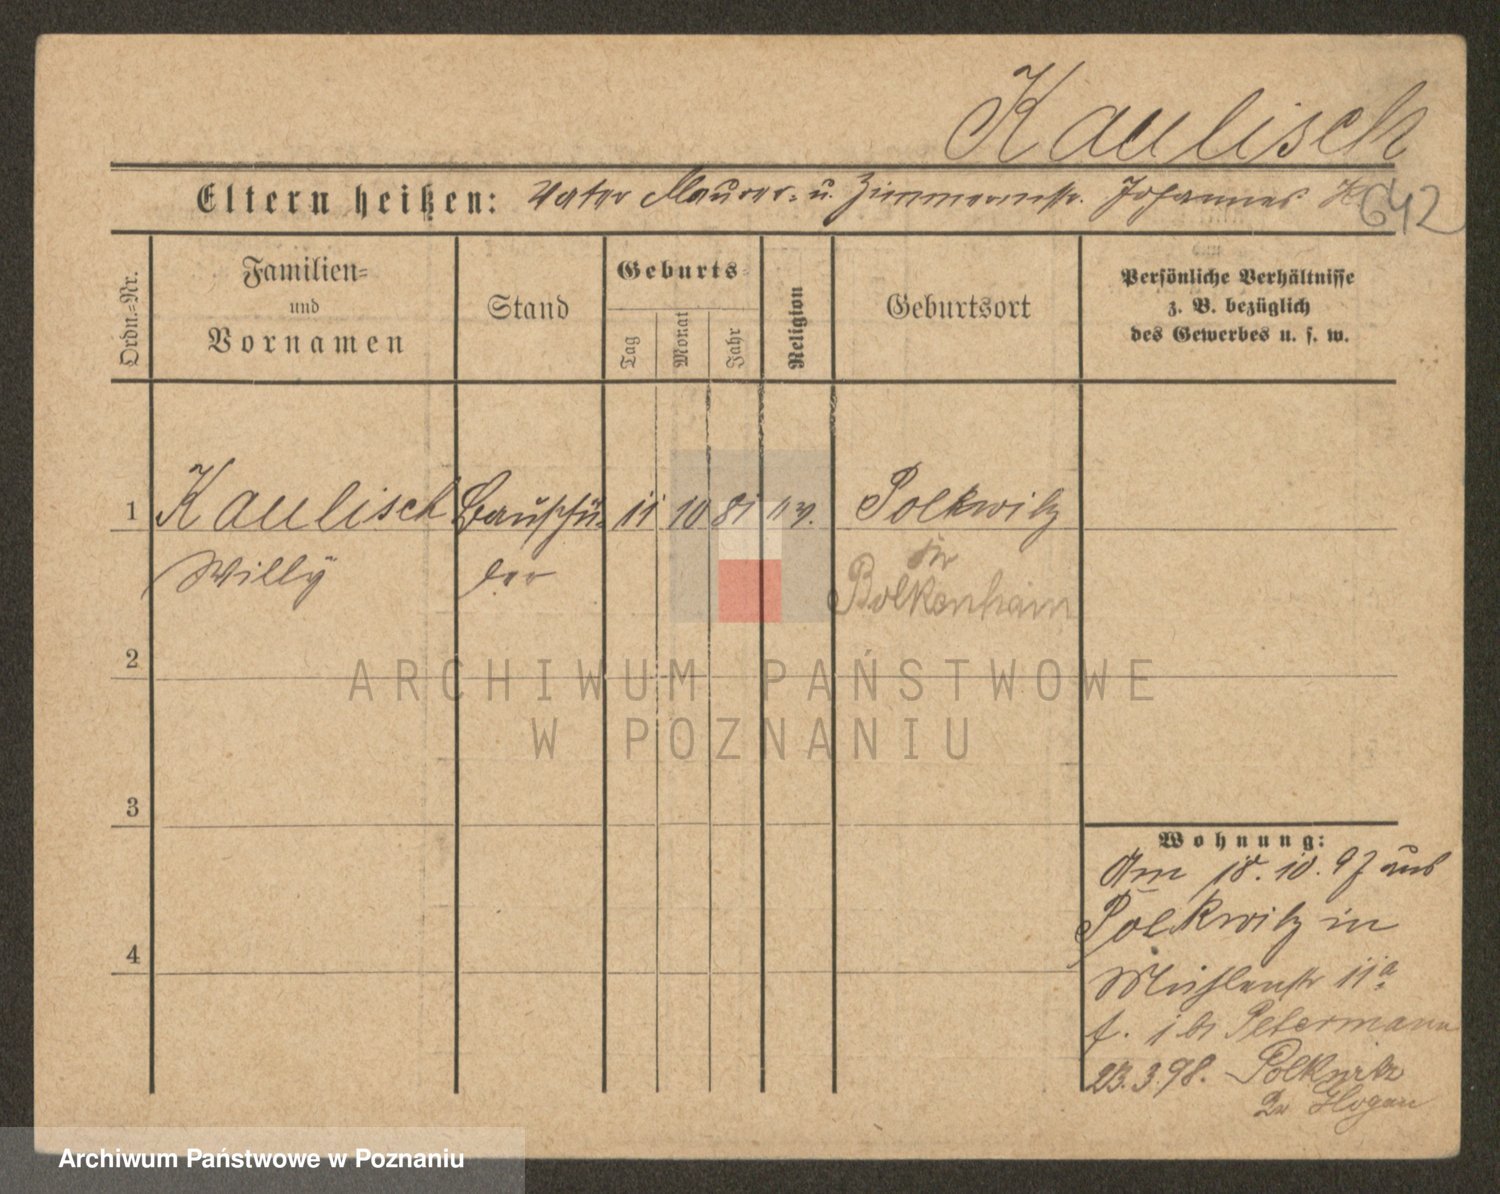 Kaulisch
Eltern heißen: Vater Maurer- u. Zimmermstr. Johannes K
642
Ordn.=Nr.
Familien=
und
Vornamen
Stand
Geburts=
Tag
Monat
Jahr
Religion
Geburtsort
Persönliche Verhältnisse
z. B. bezüglich
des Gewerbes u. s. w.
1 Kaulisch Bauschü- 11 10 81 ev. Polkwitz
Willy ler
Kr
Bolkenhain
2
3
4
Wohnung:
Am 18. 10. 97 aus
Polkwitz in
Mühlenstr 11a
f. i bs Petermann
23.3.98. Polkwitz
Kr Glogau
ARCHIWUM PAŃSTWOWE
W POZNANIU
Archiwum Państwowe w Poznaniu